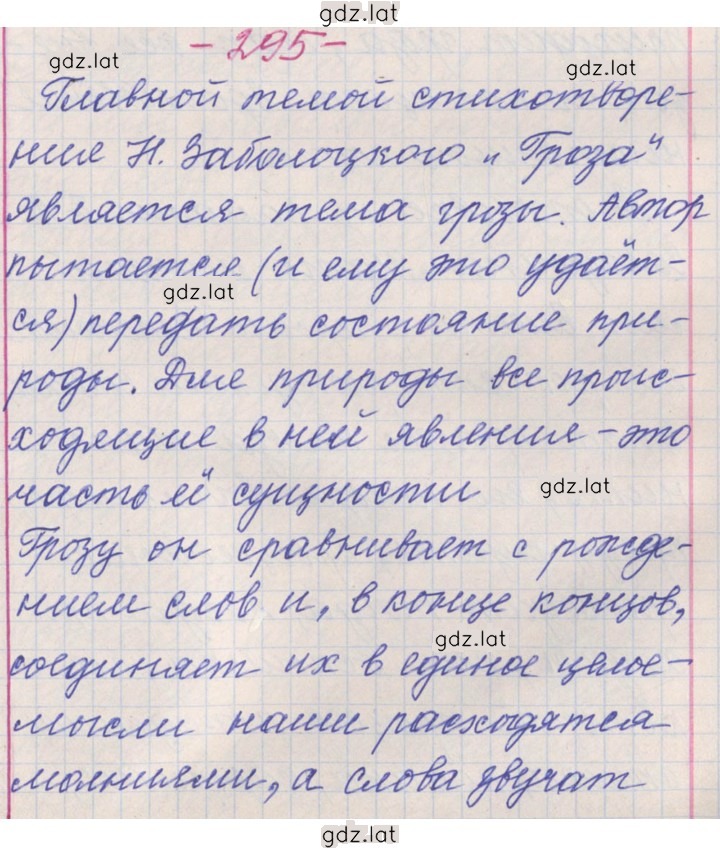 gdz.lat
- 295 -
gdz.lat
gdz.lat
Главной темой стихотворе-
ния Н. Заболоцкого „Гроза"
является тема грозы. Автор
пытается (и ему это удаёт-
gdz.lat
ся) передать состояние при-
роды. Для природы все проис-
ходящие в ней явления - это
часть её сущности
gdz.lat
Грозу он сравнивает с рожде-
нием слов и, в конце концов,
gdz.lat
соединяет их в единое целое-
мысли наши расходятся
молниями, а слова звучат
gdz.lat